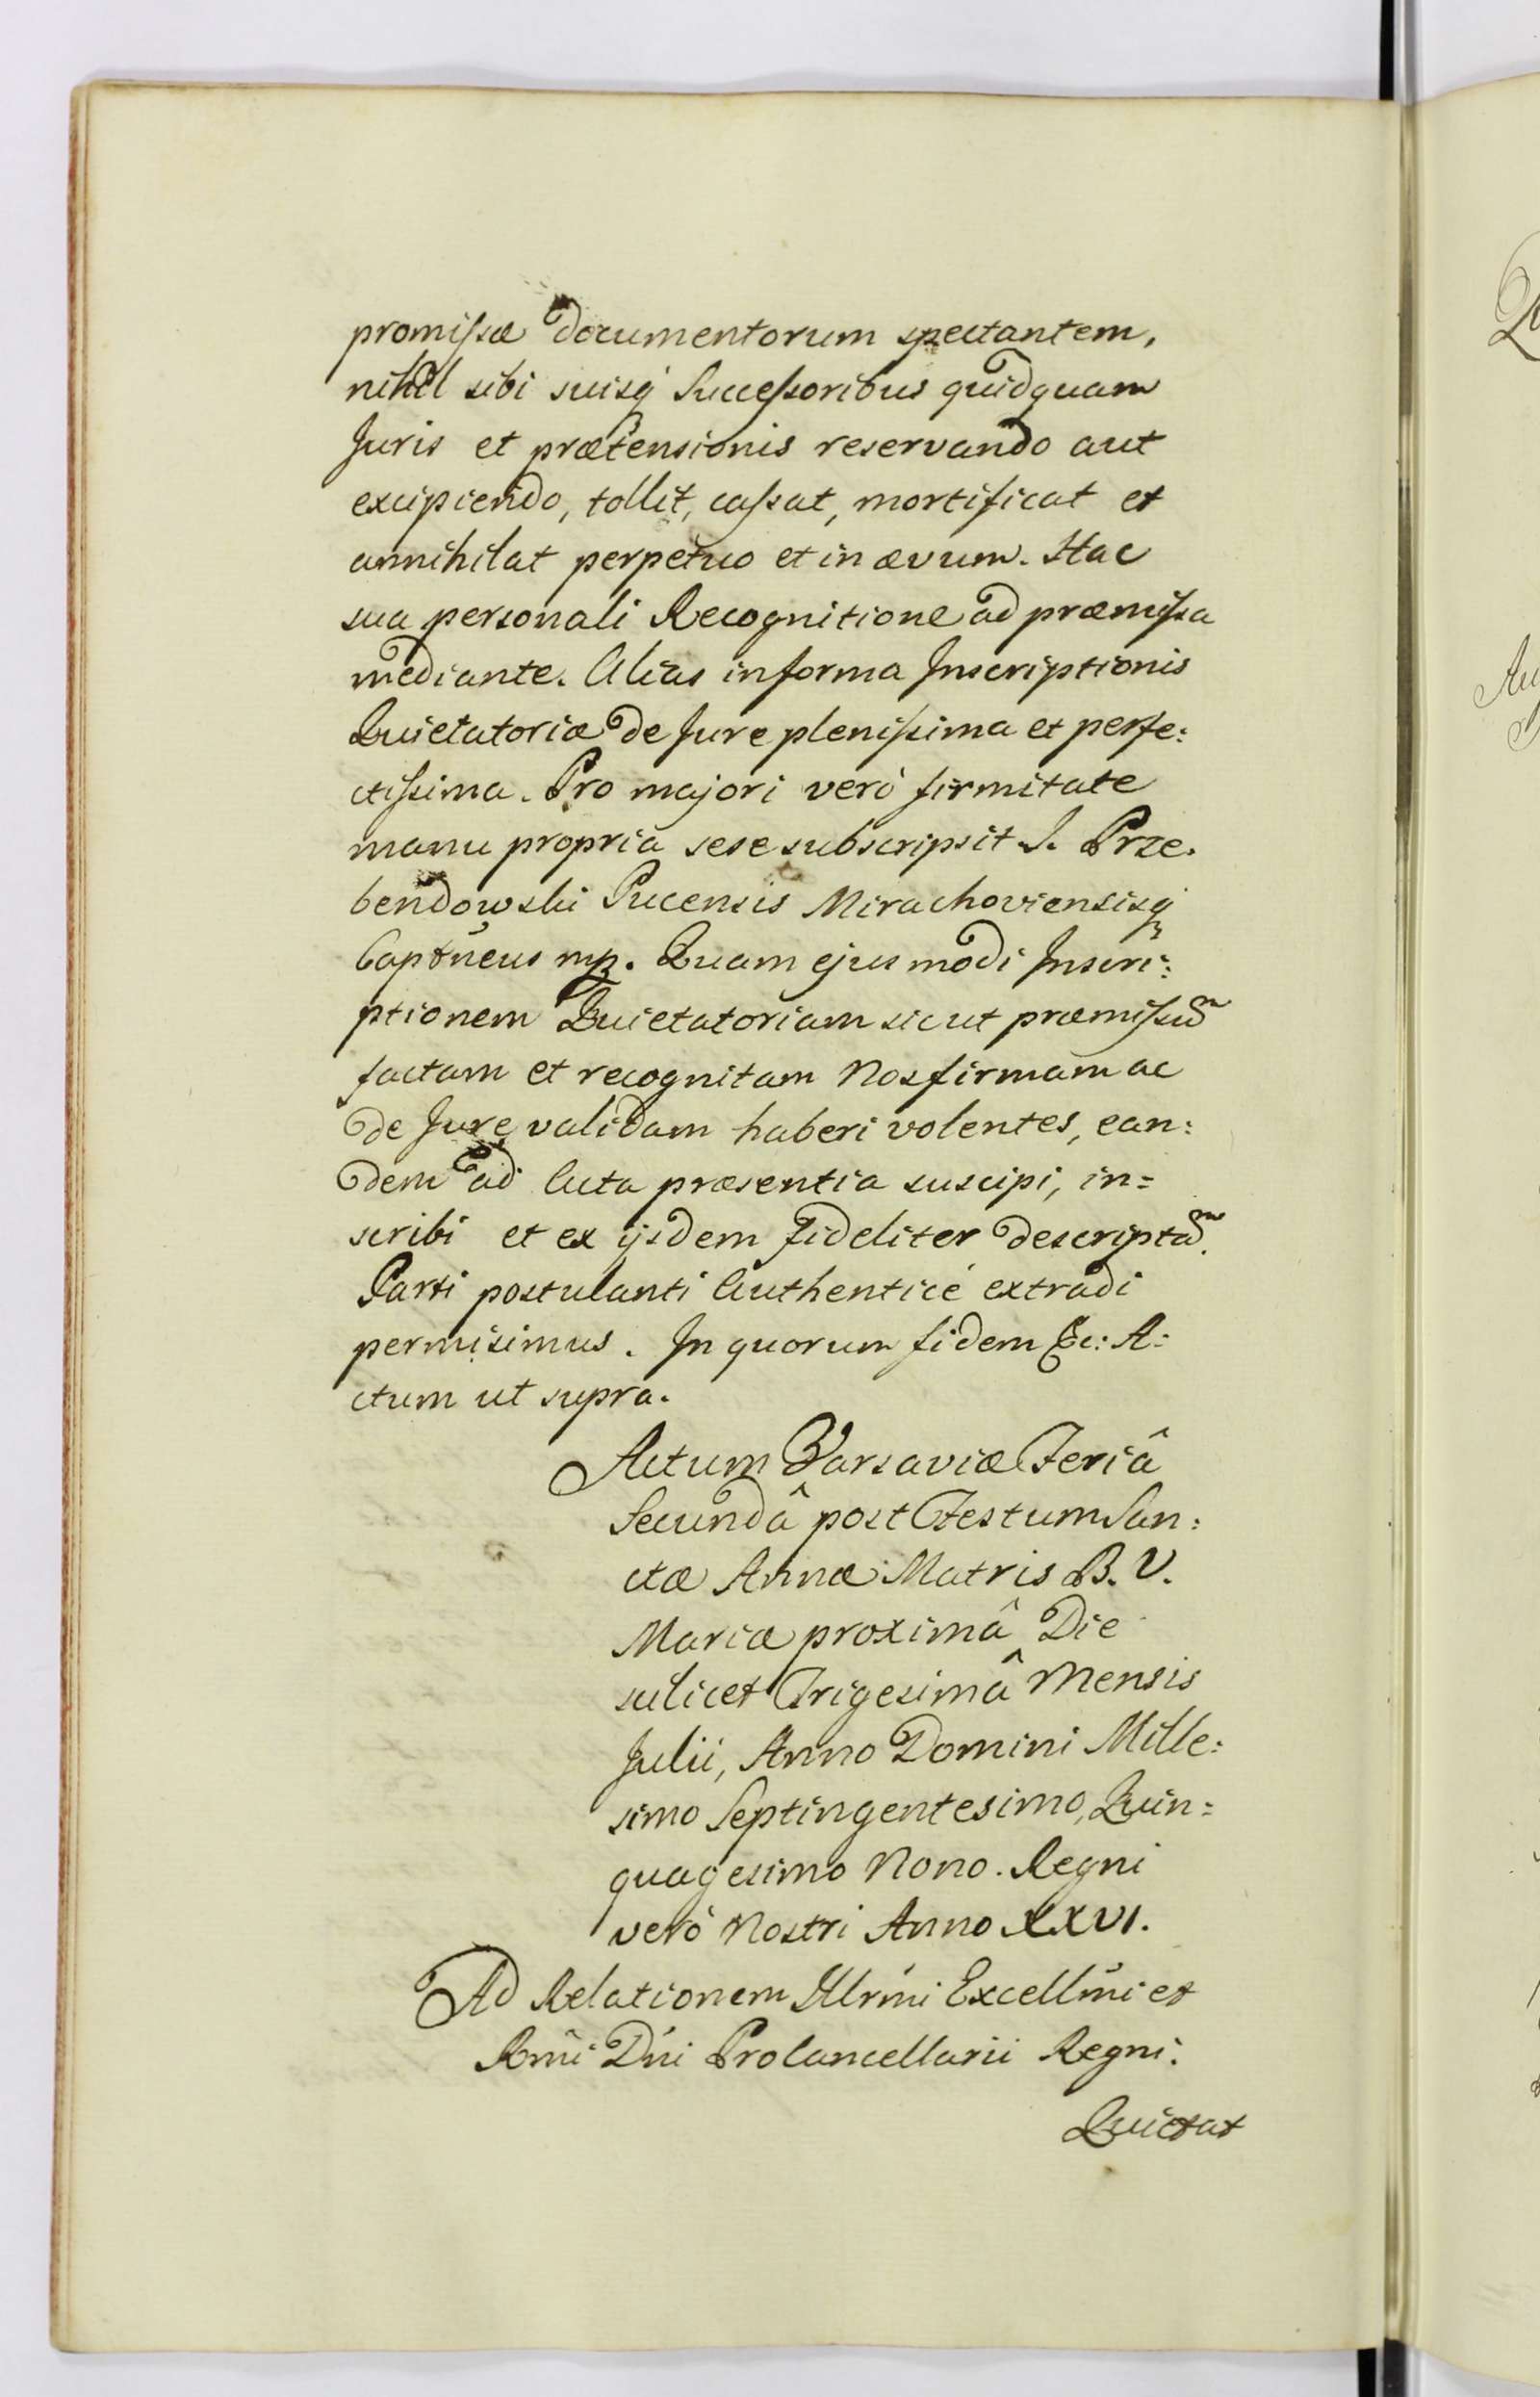 promissæ documentorum spectantem,
nihil sibi suisq́ Successoribus quidquam
Juris et prætensionis reservando aut
excipiendo, tollit, cassat, mortificat et
annihilat perpetuo et in ævum. Hac
sua personali Recognitione ad præmissa
mediante. Alias in forma Inscriptionis
Quietatoriæ de Jure plenissima et perfe:
ctissima. Pro majori verò firmitate
manu propria sese subscripsit J. Prze.
bendowski Pucensis Mirachoviensisq́
Captneus mp. Quam ejusmodi Inscri:
ptionem Quietatoriam sicut præmissum
factam et recognitam Nos firmam ac
de Jure validam haberi volentes, ean:
dem ad Acta præsentia suscipi, in=
scribi et ex ijsdem fideliter descriptam
Parti postulanti Authenticé extradi
permisimus. In quorum fidem &c: A:
ctum ut supra.
Actum Varsaviæ Feriâ
Secundâ post Festum San:
ctæ Annæ Matris B. V.
Mariæ proximâ Die
scilicet Trigesimâ Mensis
Julii, Anno Domini Mille:
simo Septingentesimo, Quin=
quagesimo Nono. Regni
verò Nostri Anno XXVI.
Ad Relationem Illrmi Excellmi et
Rmi Dni Procancellarii Regni.
Quietat